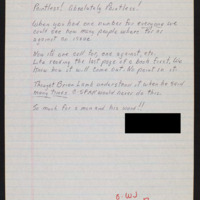 Pointless! Absolutely Pointless!
When you had one number for everyone we
could see how many people where for or
against an issue.
Now it's one call for, one against, etc.
Like reading the last page of a book first. We
know how it will come out. No point in it.
Thought Brian Lamb understood it when he said
many times C-SPAN would never do this.
So much for a man and his word!!